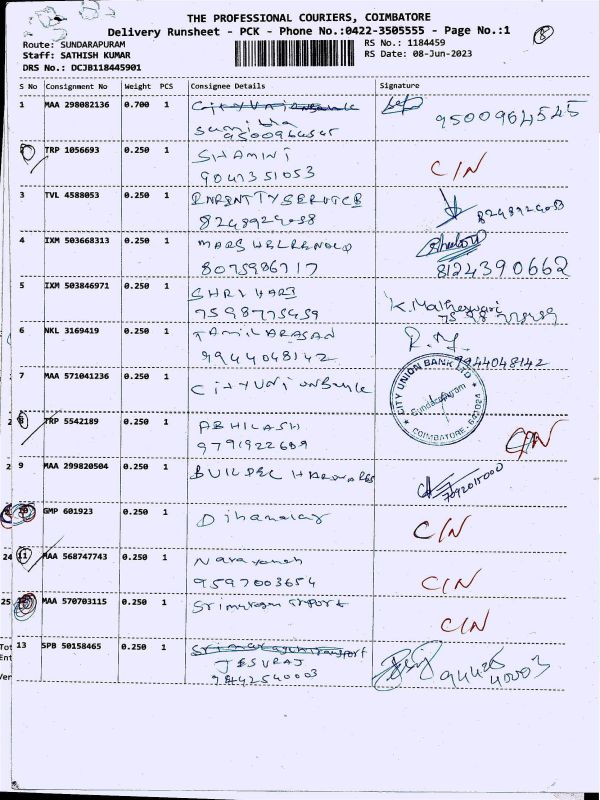 THE PROFESSIONAL COURIERS, COIMBATORE
Delivery Runsheet - PCK - Phone No.:0422-3505555 - Page No.:1
8
Route: SUNDARAPURAM
RS No.: 1184459
Staff: SATHISH KUMAR
RS Date: 08-Jun-2023
DRS No.: DCJB118445901
S No Consignment No Weight PCS Consignee Details Signature
1 MAA 298082136 0.700 1
9500964545
9500964545
2 TRP 1056693 0.250 1 SHAMINI
9047351053 C/N
3 TVL 4588053 0.250 1
4 IXM 503668313 0.250 1
8075986717 8124390662
5 IXM 503846971 0.250 1 SHRI HARI
7598775459 K. Matheswari
6 NKL 3169419 0.250 1 TAMILARASAN
9944048142 9944048142
7 MAA 571041236 0.250 1 City Union Bank
CITY UNION BANK LTD
Sundarapuram
COIMBATORE - 641024
8 TRP 5542189 0.250 1 ABHILASH
9791922689 C/N
2 9 MAA 299820504 0.250 1
7092015000
10 GMP 601923 0.250 1 C/N
24 11 MAA 568747743 0.250 1 Narayanan
9597003654 C/N
25 12 MAA 570703115 0.250 1 Srimurugan Tnsport
C/N
Tot 13 SPB 50158465 0.250 1
Ent JESURAJ
9442540003 94425
40003
Ver